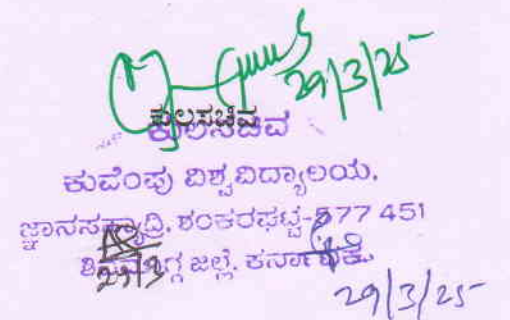 29/3/25
ಕುಲಸಚಿವ
ಕುಲಸಚಿವ
ಕುವೆಂಪು ವಿಶ್ವವಿದ್ಯಾಲಯ,
ಜ್ಞಾನಸಹ್ಯಾದ್ರಿ, ಶಂಕರಘಟ್ಟ-577 451
ಶಿವಮೊಗ್ಗ ಜಿಲ್ಲೆ, ಕರ್ನಾಟಕ.
29/3
29/3/25